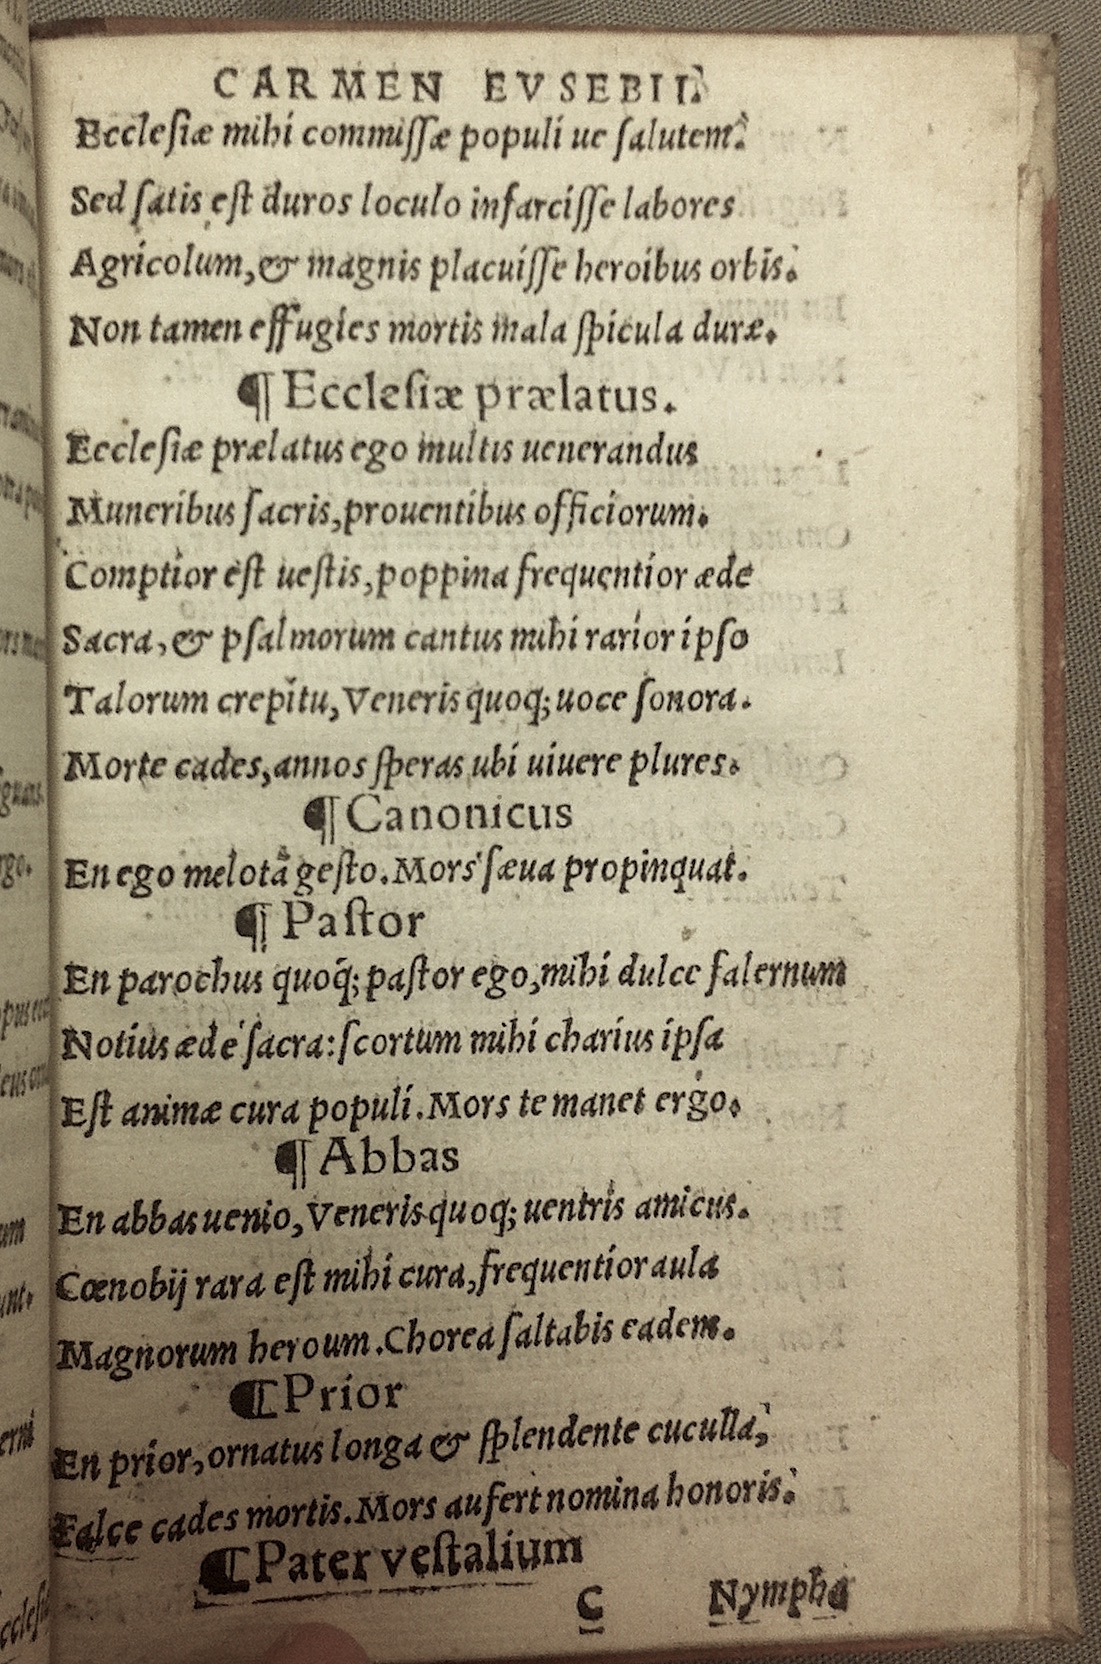 CARMEN EVSEBII.
Eccleſiæ mihi commiſſæ populi ue ſalutem.
Sed ſatis eſt duros loculo infarciſſe labores
Agricolum, & magnis placuiſſe heroibus orbis.
Non tamen effugies mortis mala ſpicula duræ.
¶ Eccleſiæ prælatus.
Eccleſiæ prælatus ego multis uenerandus
Muneribus ſacris, prouentibus officiorum.
Comptior eſt ueſtis, poppina frequentior æde
Sacra, & pſalmorum cantus mihi rarior ipſo
Talorum crepitu, Veneris quoq; uoce ſonora.
Morte cades, annos ſperas ubi uiuere plures.
¶ Canonicus
En ego melotã geſto. Mors ſæua propinquat.
¶ Paſtor
En parochus quoq̃; paſtor ego, mihi dulce falernum
Notius æde ſacra: ſcortum mihi charius ipſa
Eſt animæ cura populi. Mors te manet ergo.
¶ Abbas
En abbas uenio, Veneris quoq; uentris amicus.
Cœnobij rara eſt mihi cura, frequentior aula
Magnorum heroum. Chorea ſaltabis eadem.
¶ Prior
En prior, ornatus longa & ſplendente cuculla,
Falce cades mortis. Mors aufert nomina honoris.
¶ Pater veſtalium
C Nympha